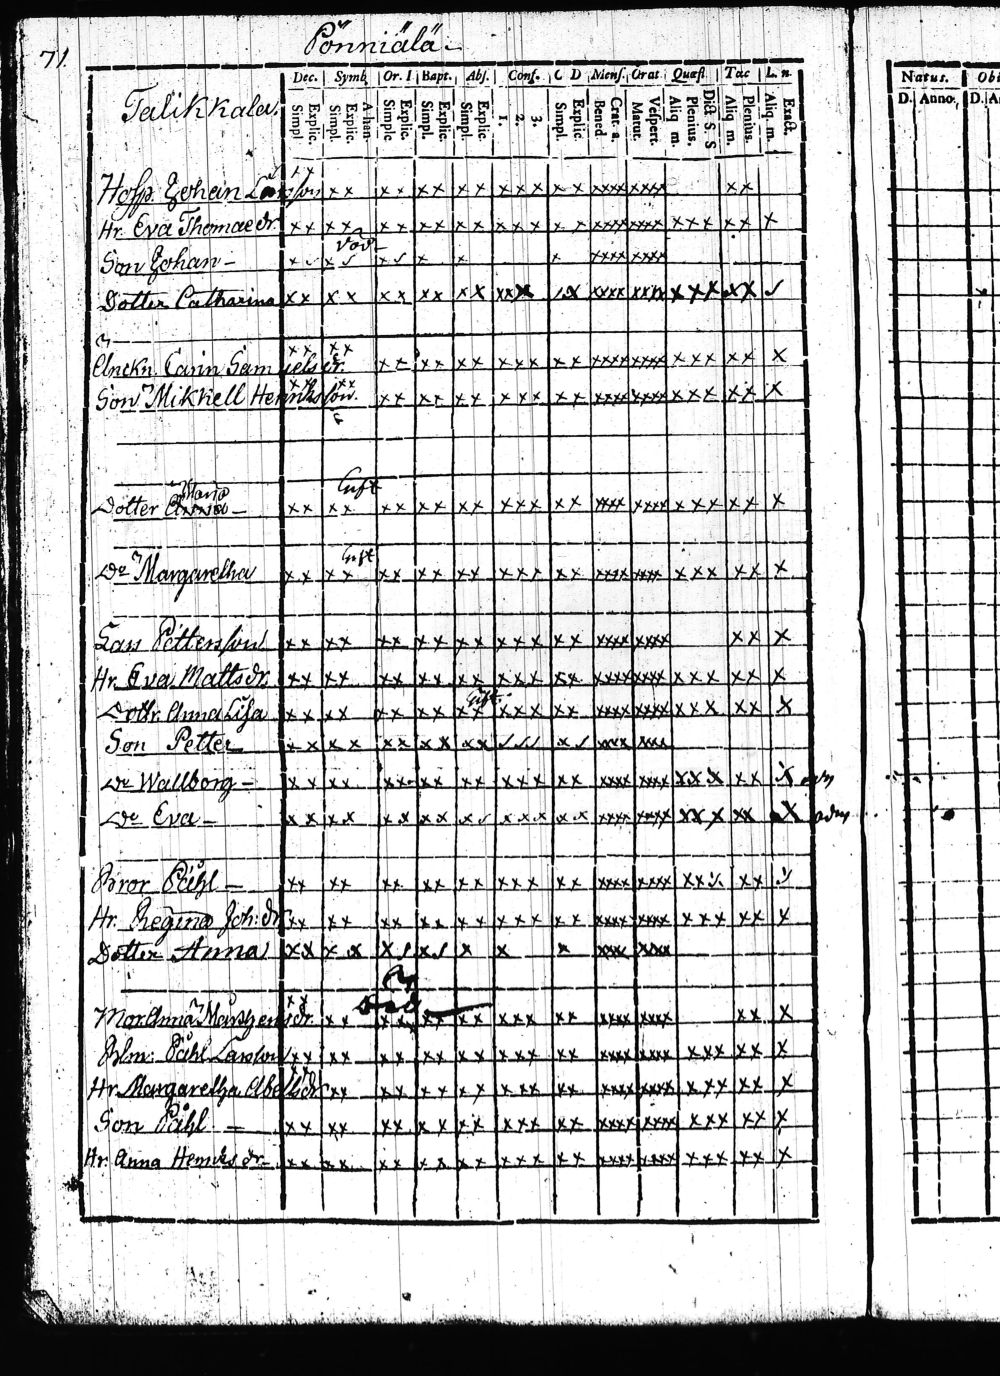 71.
Pönniälä
Talikkala.
Dec. Symb. Or. D Bapt. Abs. Conf. C D Mens. Orat. Quæst. Tac L. n.
Simpl. Explic. Simpl. Explic. Athan. Simpl. Explic. Simpl. Explic. Simpl. Explic. 1. 2. 3. Simpl. Explic. Bened. Grat. a. Matut. Vespert. Aliq. m. Plenius. Dict. S. S Aliq. m. Plenius. Aliq. m. Exact.
Natus. Obi
D. Anno. D. A
Hosp. Johan Larsson xx xx xx xx xx xxx xx xxxx xxxx xx
Hr. Eva Thomae dr. xx xx xx xx xx xxx xx xxxx xxxx xxx xx x
Son Johan –
Dotter Catharina xx xx xx xx xx xxx xx xxxx xxxx xxx xx
Enckn. Carin Samuels dr. xx xx xx xx xx xxx xx xxxx xxxx xxx xx x
Son Mikkell Henrichsson. xx xx xx xx xx xxx xx xxxx xxxx xxx xx x
Gift
Maria
Dotter Anna – xx xx xx xx xx xxx xx xxxx xxxx xxx xx x
Gift
Do Margaretha xx xx xx xx xx xxx xx xxxx xxxx xxx xx x
Lars Pettersson xx xx xx xx xx xxx xx xxxx xxxx xx x
Hr. Eva Matts dr. xx xx xx xx xx xxx xx xxxx xxxx xxx xx x
Gift.
Dottr. Anna Lisa xx xx xx xx xx xxx xx xxxx xxxx xxx xx x
Son Petter xx xx xx xx xx
Do Wallborg – xx xx xx xx xx xxx xx xxxx xxxx xxx xx x
Do Eva – xx xx xx xx xxx xx xxxx xxxx xxx xx x
Bror Påhl – xx xx xx xx xx xxx xx xxxx xxxx xx
Hr. Regina Joh: dr. xx xx xx xx xx xxx xx xxxx xxxx xxx xx x
Dotter Anna xx xx
Mor Anna Mårtens dr. xx xx xx xx xx xxx xx xxxx xxxx xx x
Påhl Larsson xx xx xx xx xx xxx xx xxxx xxxx xxx xx x
Hr. Margaretha Abells dr. xx xx xx xx xxx xx xxxx xxxx xxx xx x
Son Påhl – xx xx xx xx xx xxx xx xxxx xxxx xxx xx x
Hr. Anna Henriks dr. xx xx xx xx xx xxx xx xxxx xxxx xxx xx x